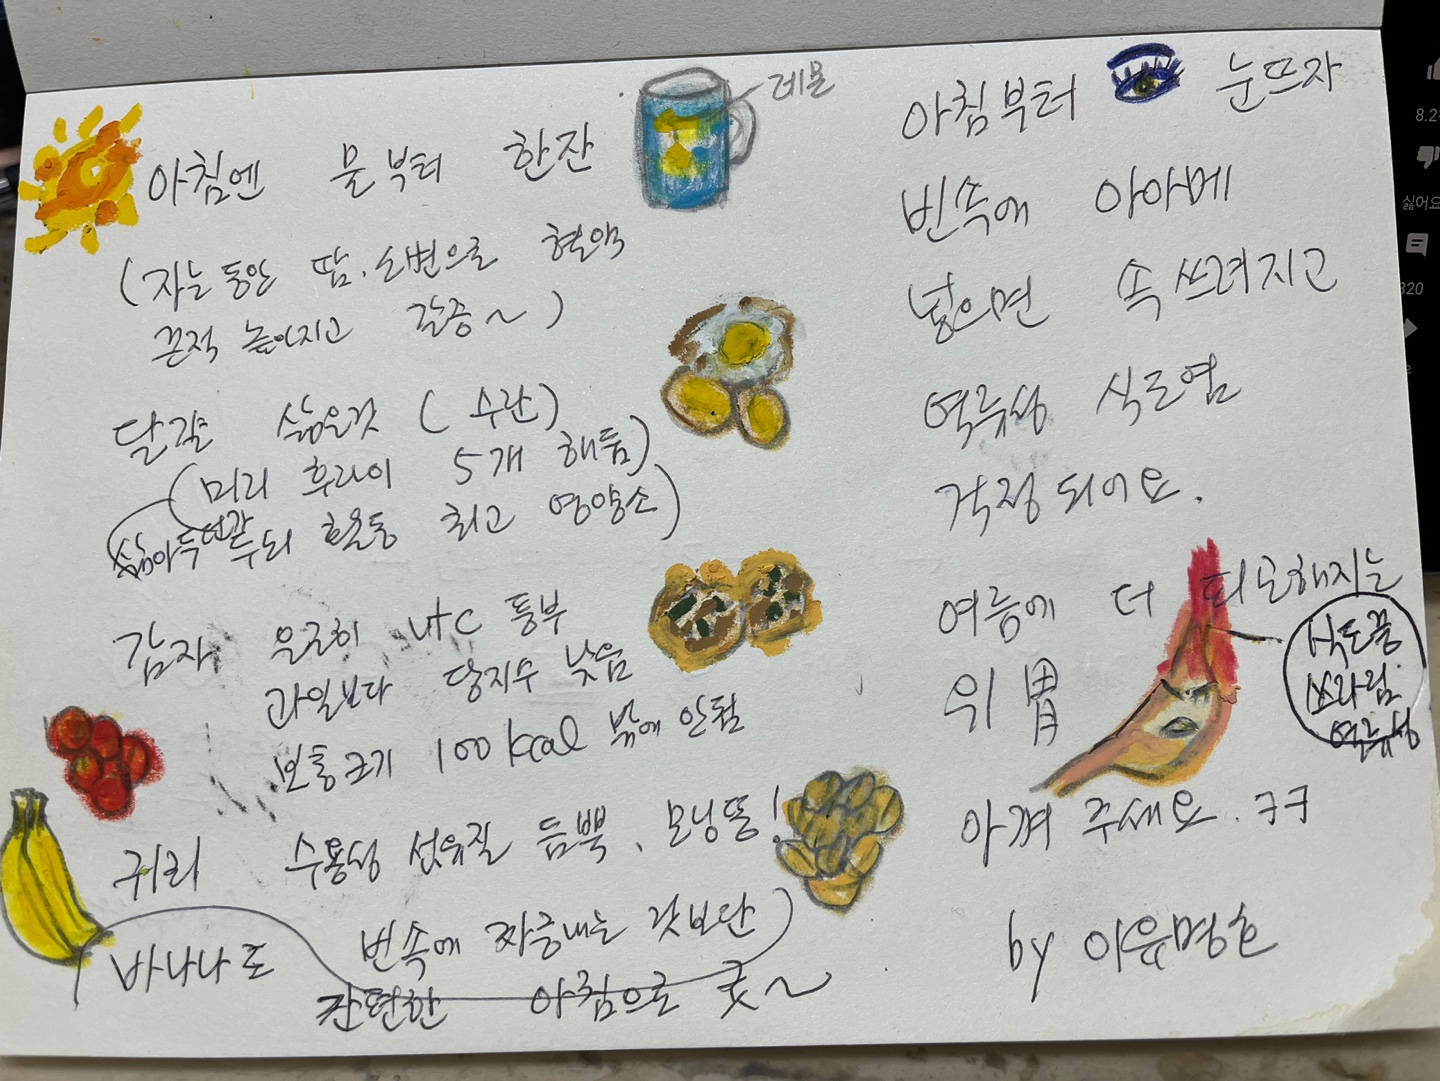 아침엔 물부터 한잔
레몬
(자는동안 땀.소변으로 혈액
끈적 높아지고 갈증~)
달걀 삶은것 (수란)
(미리 후라이 5개 해둠)
삶아두던과 두뇌 활동 최고 영양소)
감자 은근히 비타C 풍부
과일보다 당지수 낮음
보통크기 100 kcal 밖에 안됨
귀리 수용성 섬유질 듬뿍, 모닝똥!
바나나도 빈속에 짜증내는 것보단)
간단한 아침으로 굿~
아침부터 눈뜨자
빈속에 아아메
넣으면 속쓰려지고
역류성 식도염
걱정되어요.
여름에 더 피곤해지는
위 胃
식도쯤
쓰라림
역류성
아껴 주세요. ㅋㅋ
by 이유명호
8.2
싫어요
320